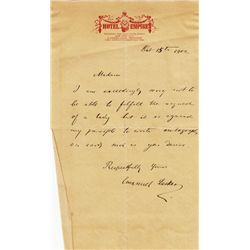 HOTEL EMPIRE
Oct. 15th 1902
Madam
I am exceedingly sorry not to
be able to fulfill the request
of a lady but it is against
my principle to write autographs
on cards such as you desire
Respectfully Yours
Emanuel Lasker